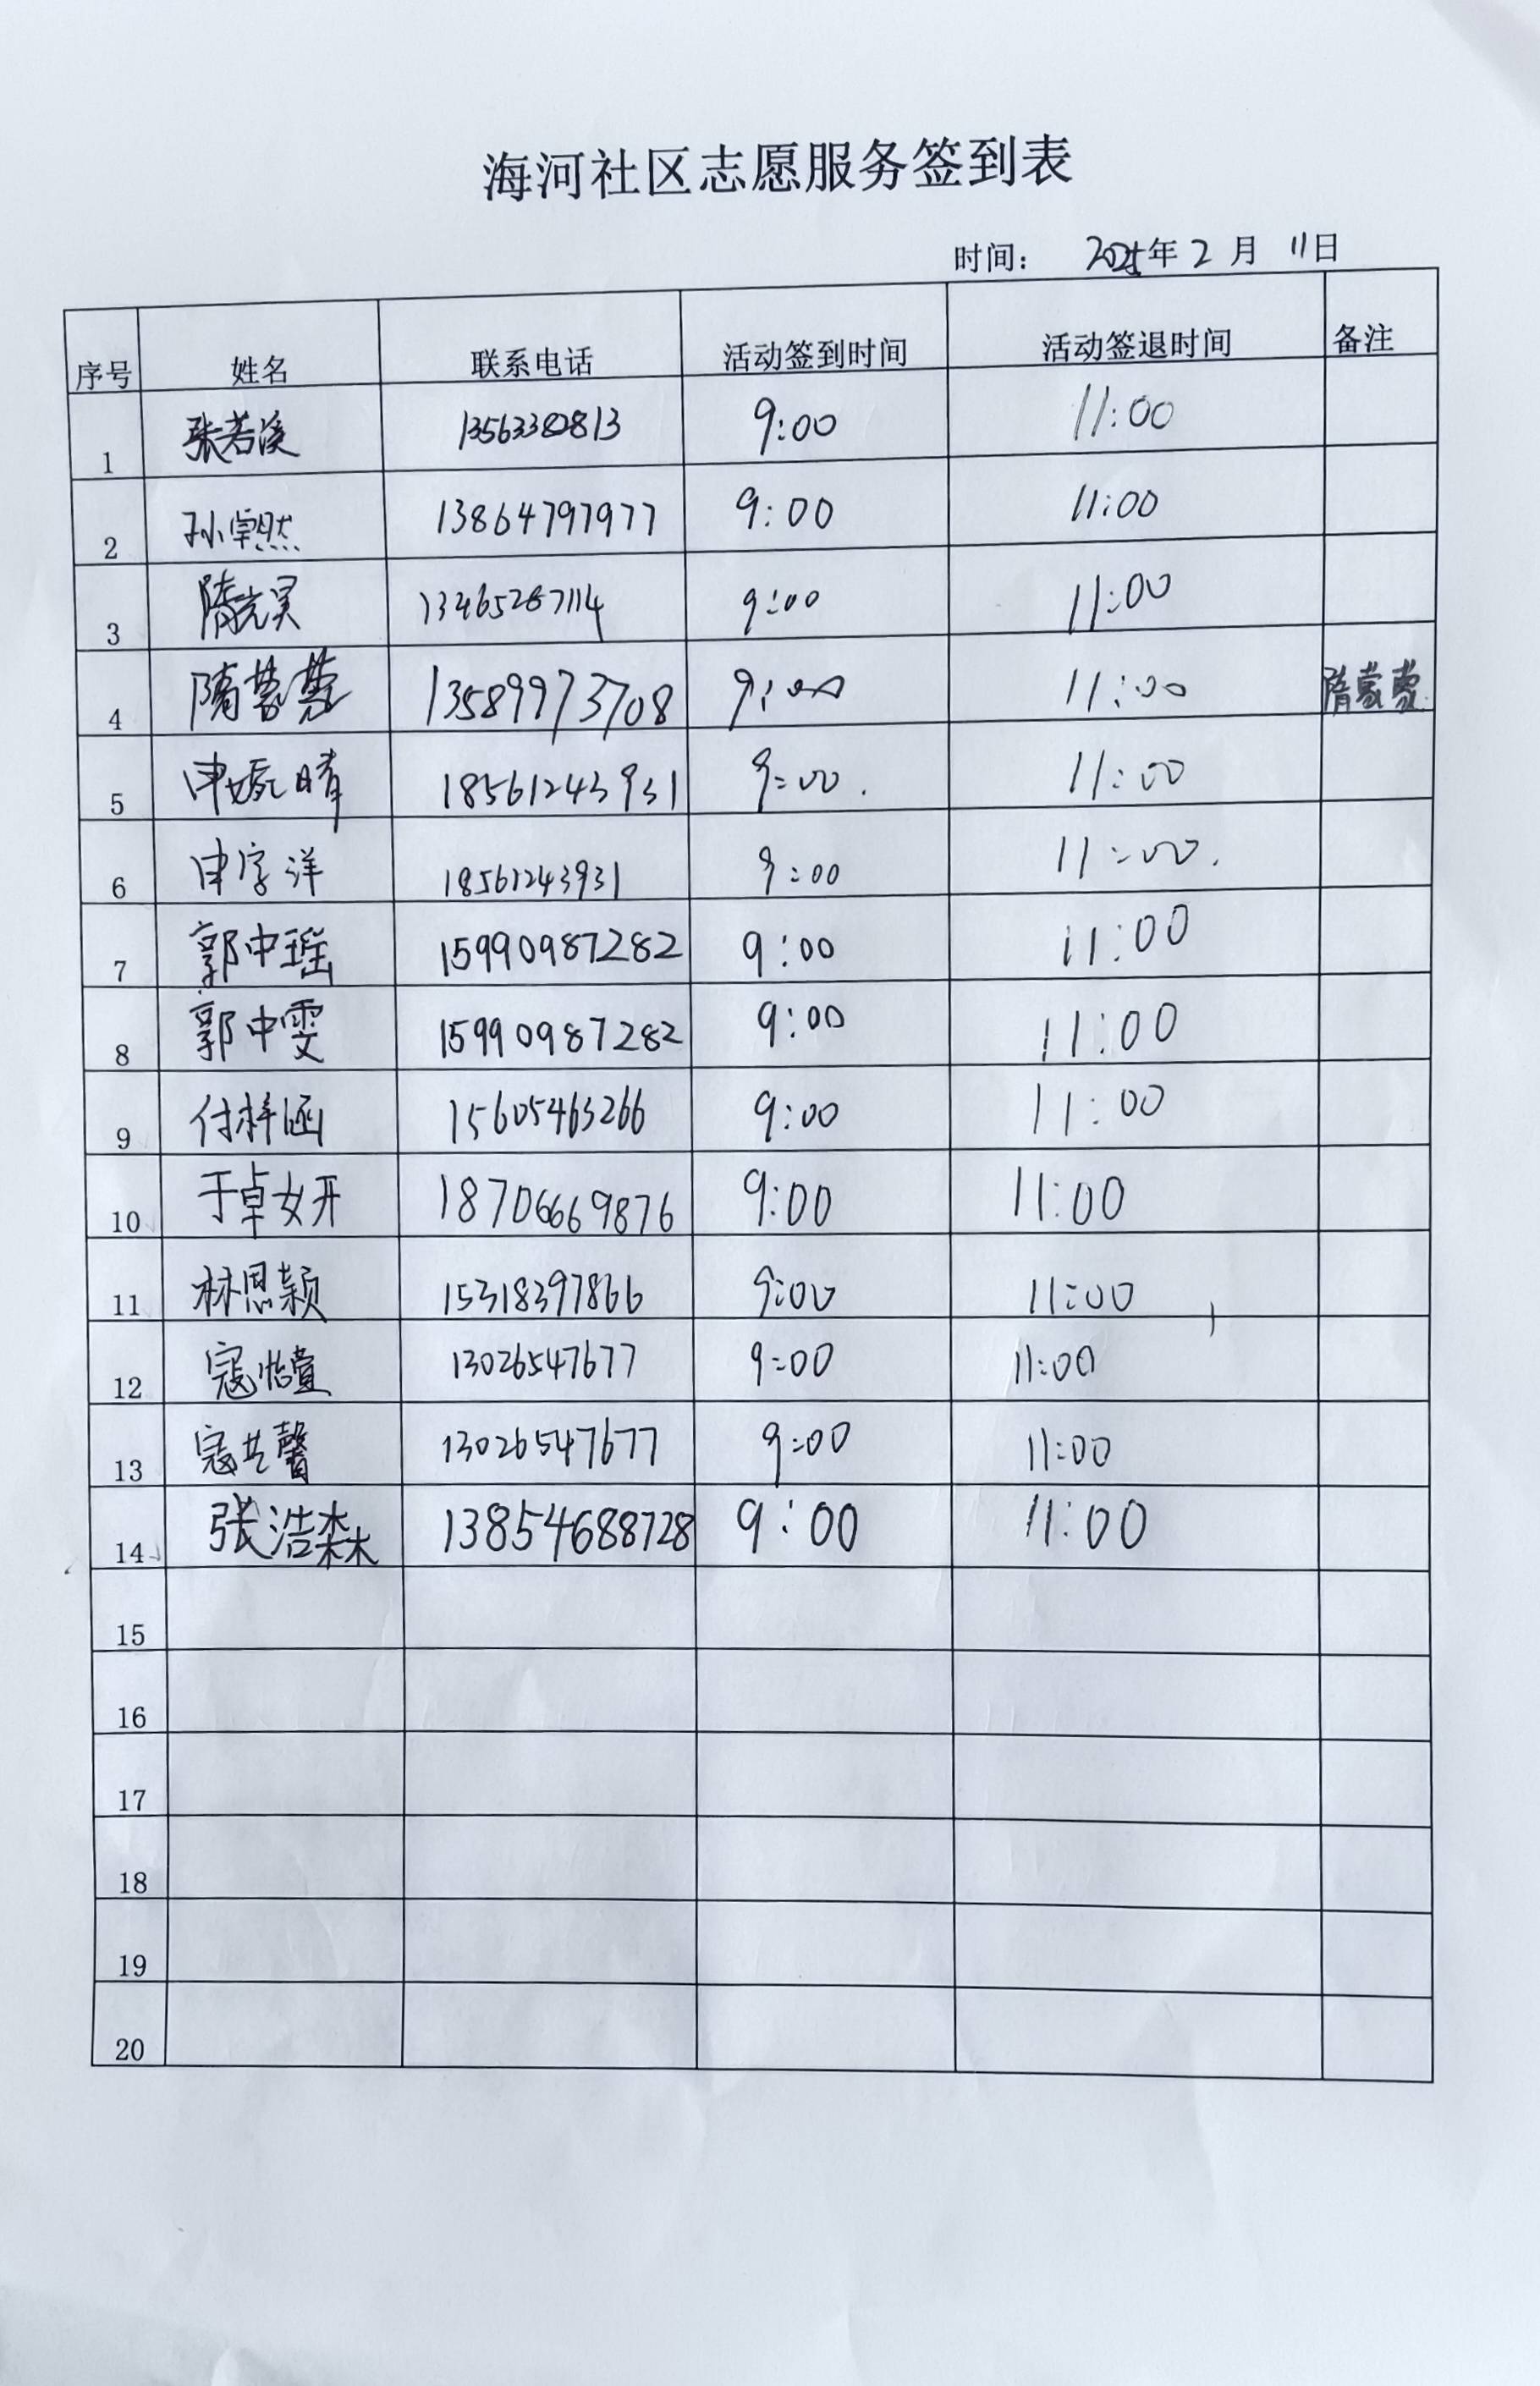 海河社区志愿服务签到表
时间： 2025年2月11日
序号 姓名 联系电话 活动签到时间 活动签退时间 备注
1 张若溪 13563380813 9:00 11:00
2 孙 13864797977 9:00 11:00
3 隋 13465287114 9:00 11:00
4 隋蒙蒙 13589973708 9:00 11:00 隋蒙蒙
5 申 晴 18561243931 9:00 11:00
6 申宇洋 18561243931 9:00 11:00
7 郭中瑶 15990987282 9:00 11:00
8 郭中雯 15990987282 9:00 11:00
9 付梓涵 15605463266 9:00 11:00
10 于卓妍 18706669876 9:00 11:00
11 林思颖 15318397866 9:00 11:00
12 寇怡萱 13026547677 9:00 11:00
13 寇艺馨 13026547677 9:00 11:00
14 张浩森 13854688728 9:00 11:00
15
16
17
18
19
20